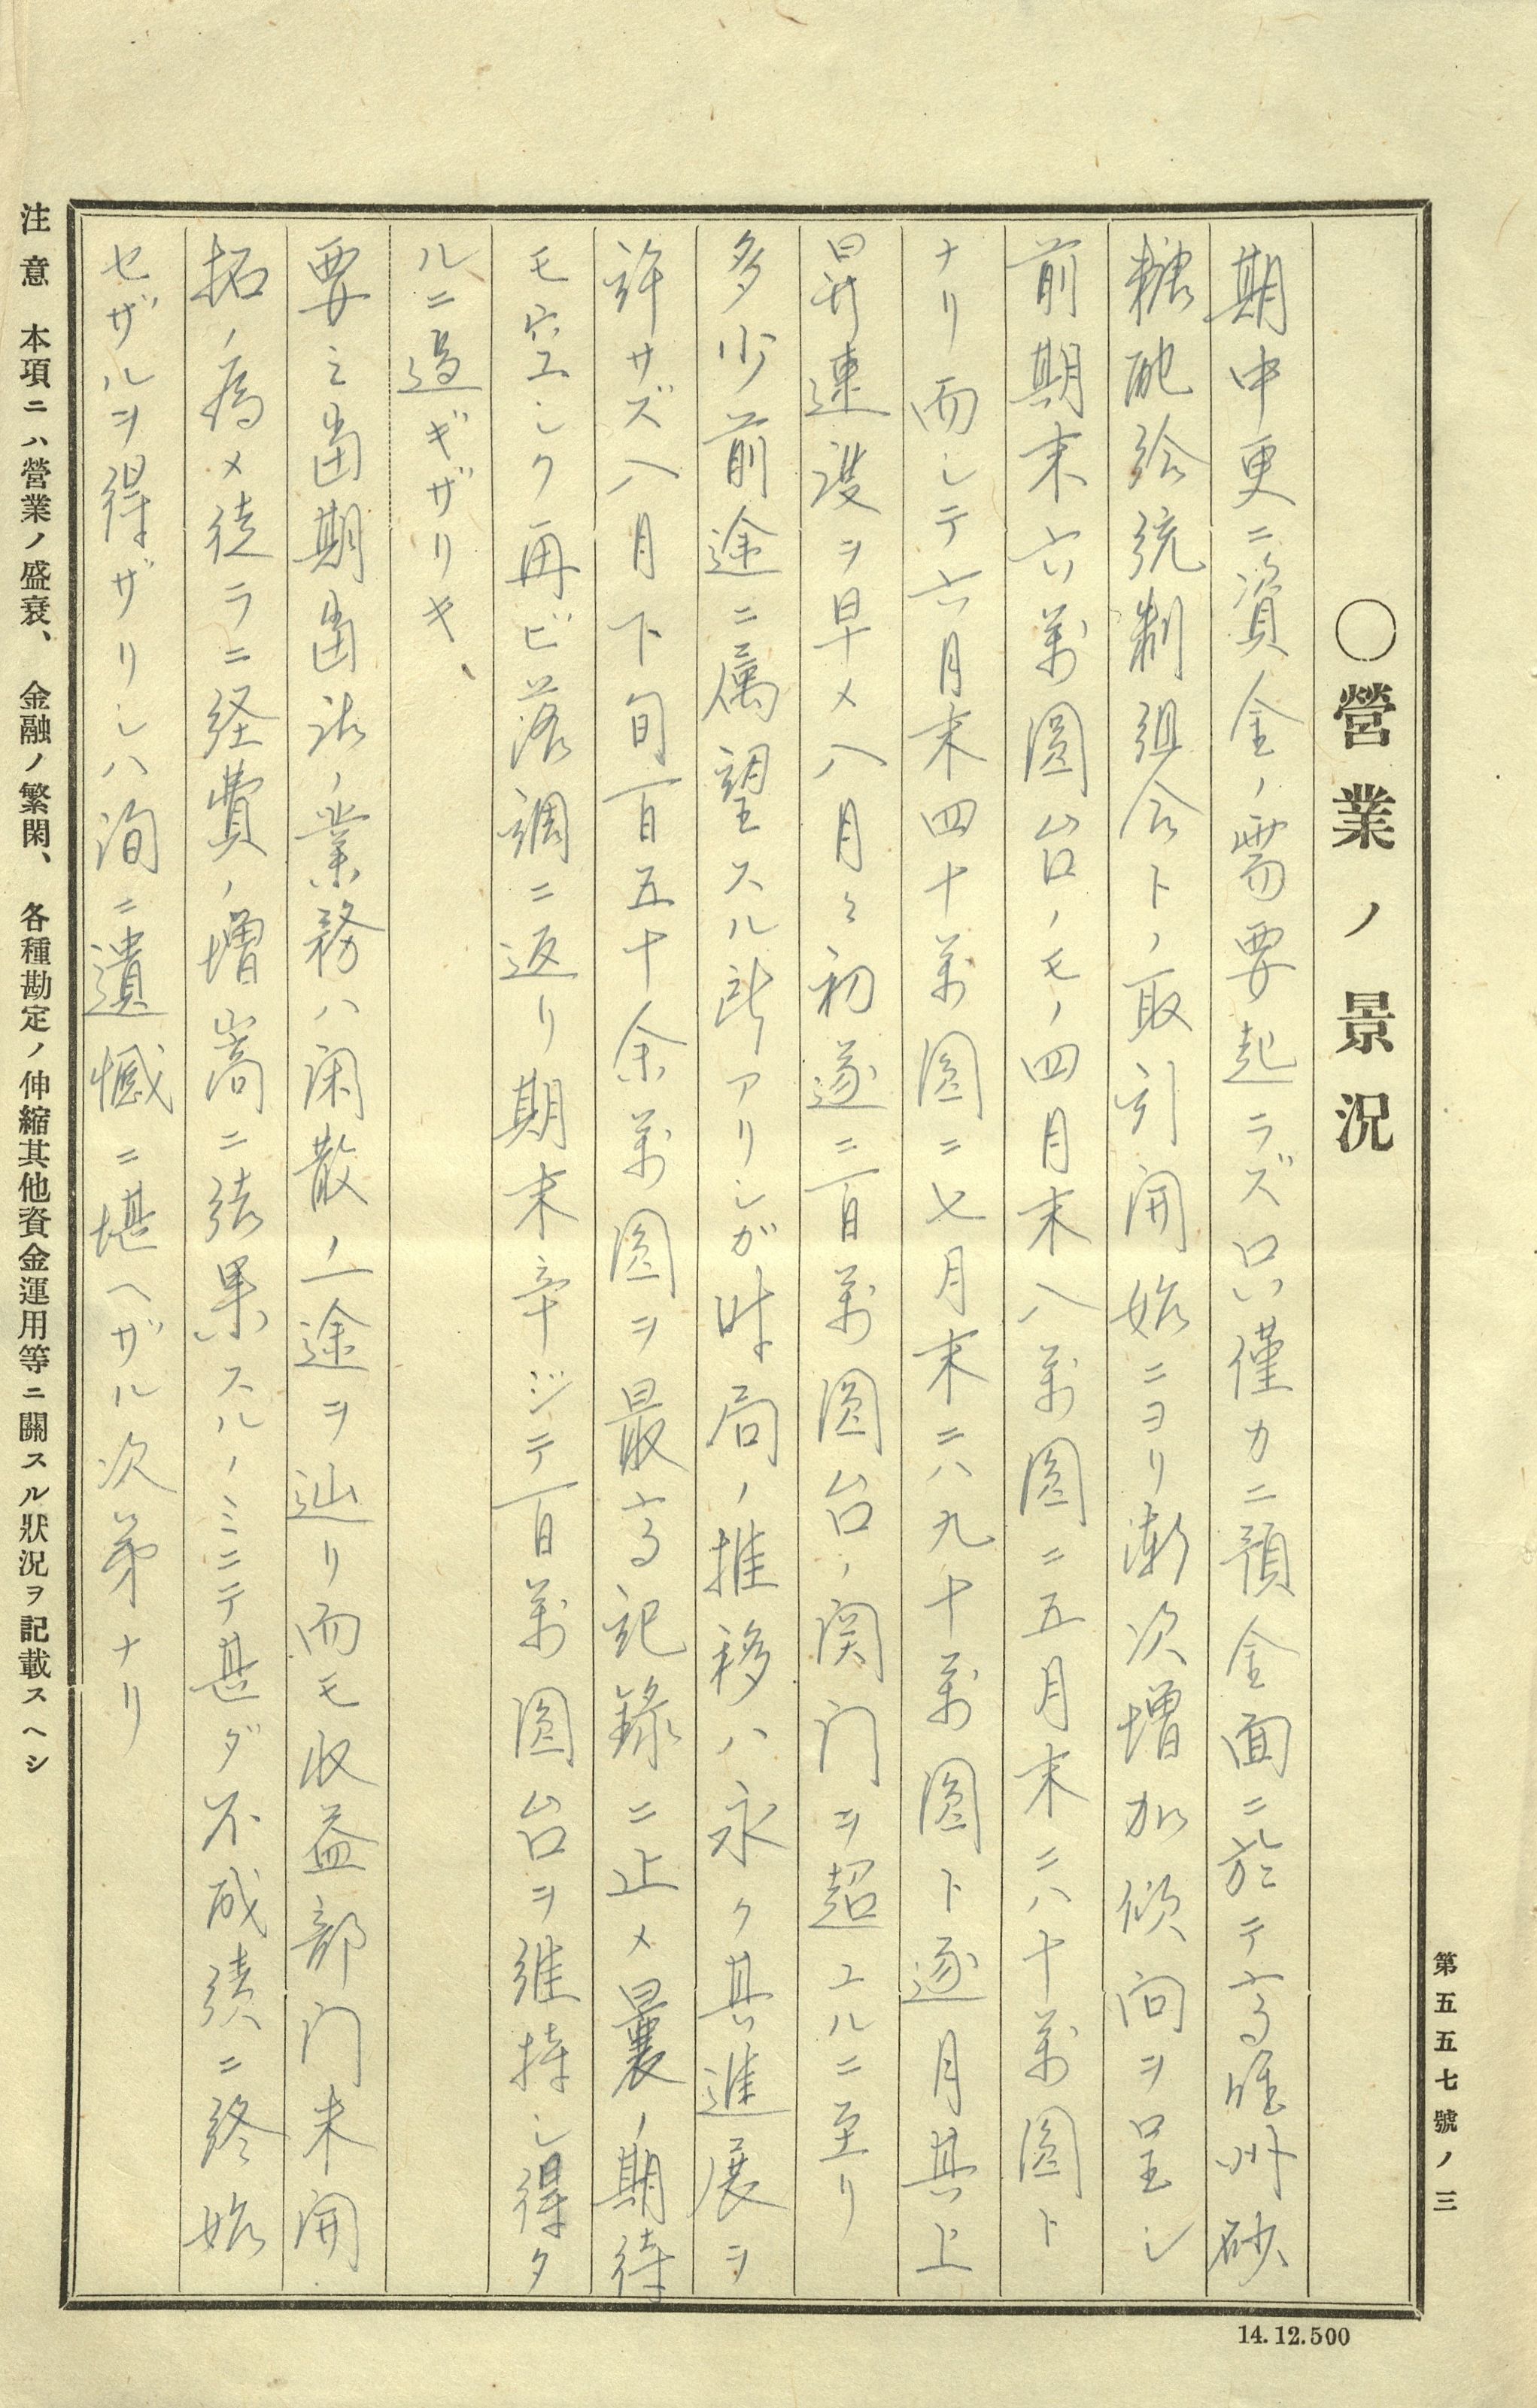 第五五七號ノ三
〇營業ノ景況
期中更ニ資金ノ需要起ラズ只僅カニ預金面ニ於テ高雄州砂
糖配給統制組合トノ取引開始ニヨリ漸次増加傾向ヲ呈シ
前期末六萬圓台ノモノ四月末八萬圓ニ五月末ニハ十萬圓ト
ナリ而シテ六月末四十萬圓ニ七月末ニハ九十萬圓ト逐月其上
昇速度ヲ早メ八月ニ初遂ニ百萬圓台ノ関门ヲ超エルニ至リ
多少前途ニ属望スル所アリシガ時局ノ推移ハ永ク其進展ヲ
許サズ八月下旬百五十余萬圓ヲ最高記錄ニ止メ曩ノ期待
モ空シク再ビ落調ニ返リ期末辛ジテ百萬圓台ヲ維持シ得タ
ルニ過ギザリキ、
要之当期当店ノ業務ハ閑散ノ一途ヲ辿リ而モ收益部门未開
拓ノ為メ徒ラニ経費ノ増嵩ニ結果スルノミニテ甚ダ不成績ニ終始
セザルヲ得ザリシハ洵ニ遺憾ニ堪ヘザル次第ナリ
注意 本項ニハ營業ノ盛衰、金融ノ繁閑、各種勘定ノ伸縮其他資金運用等ニ關スル狀況ヲ記載スヘシ
14.12.500